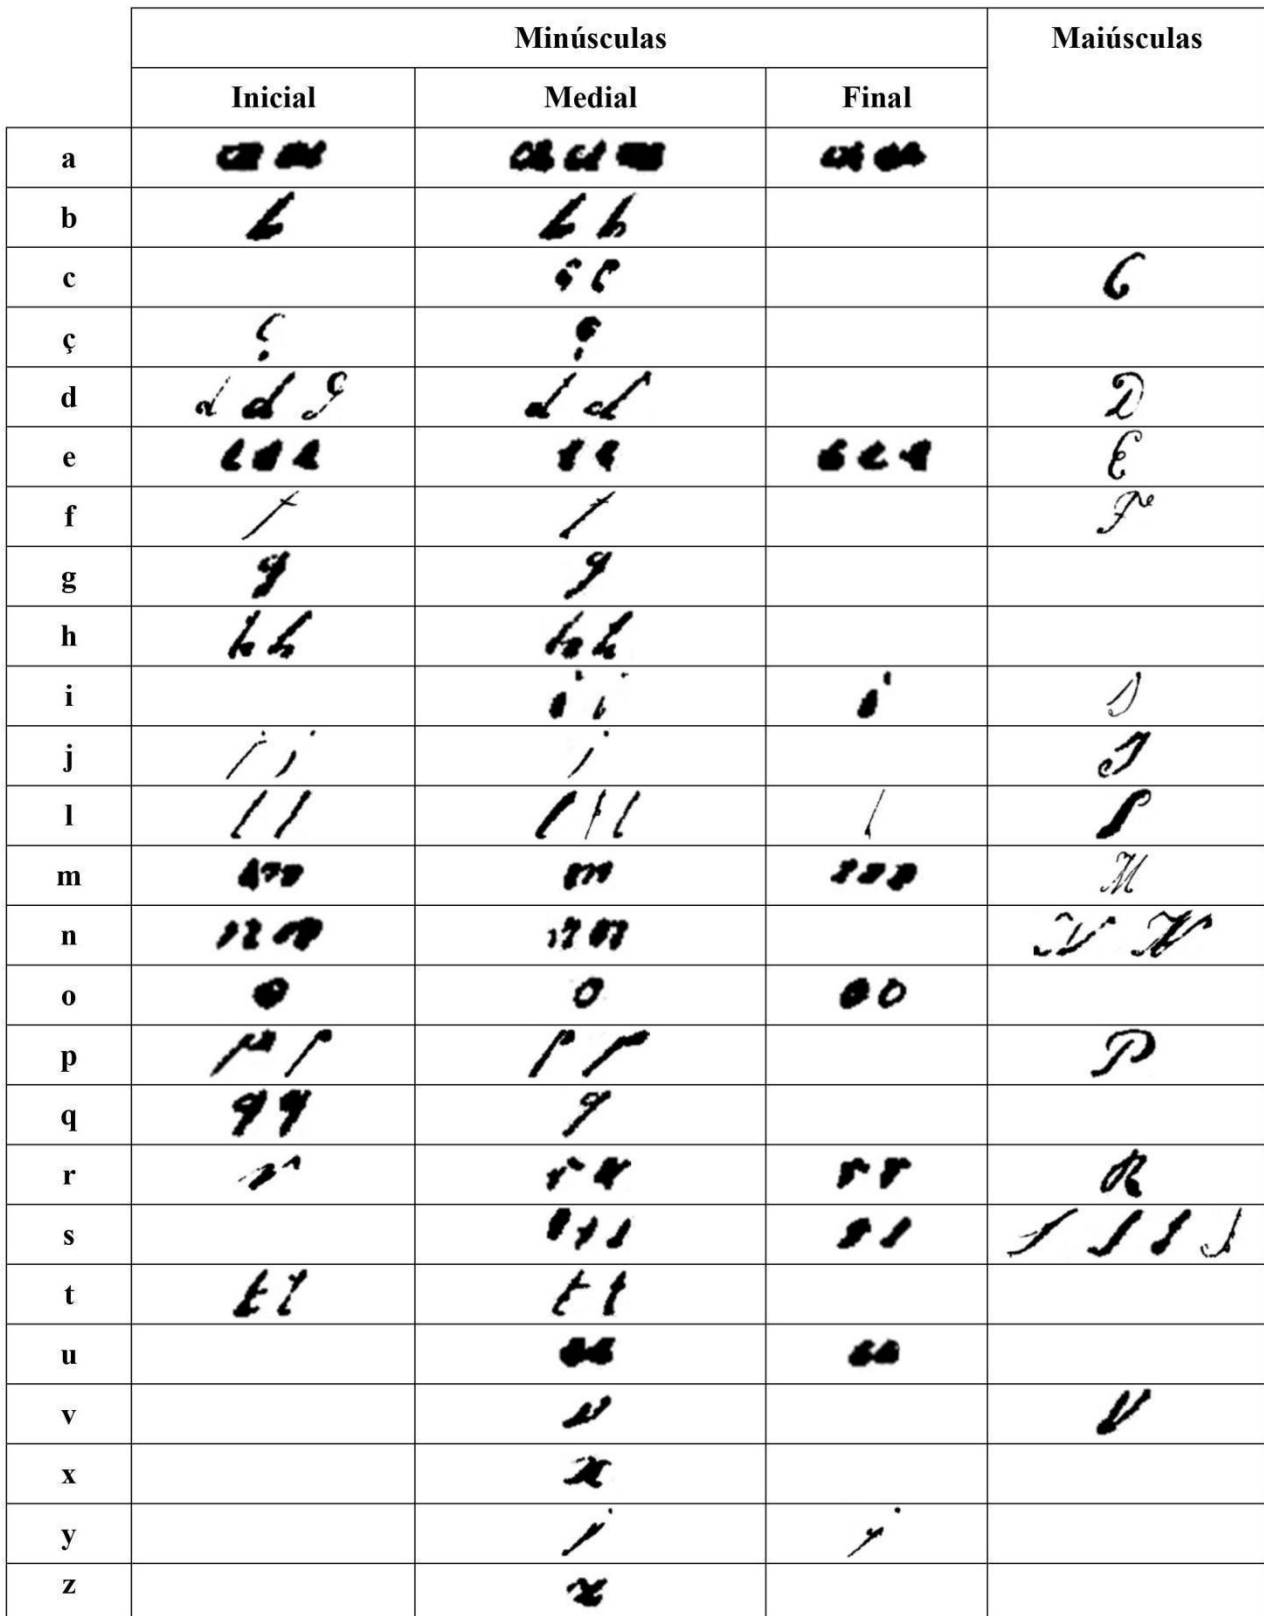 Minúsculas Maiúsculas
Inicial Medial Final
a a a a a a a a
b b b b
c c c C
ç ç ç
d d d d d d D
e e e e e e e e e E
f f f F
g g g
h h h h h
i i i i I
j j j j J
l l l l l l l L
m m m m M
n n n n n N N
o o o o o
p p p p p P
q q q q
r r r r r r R
s s s s s s S S S S
t t t t t
u u u u u
v v V
x x
y y y
z z